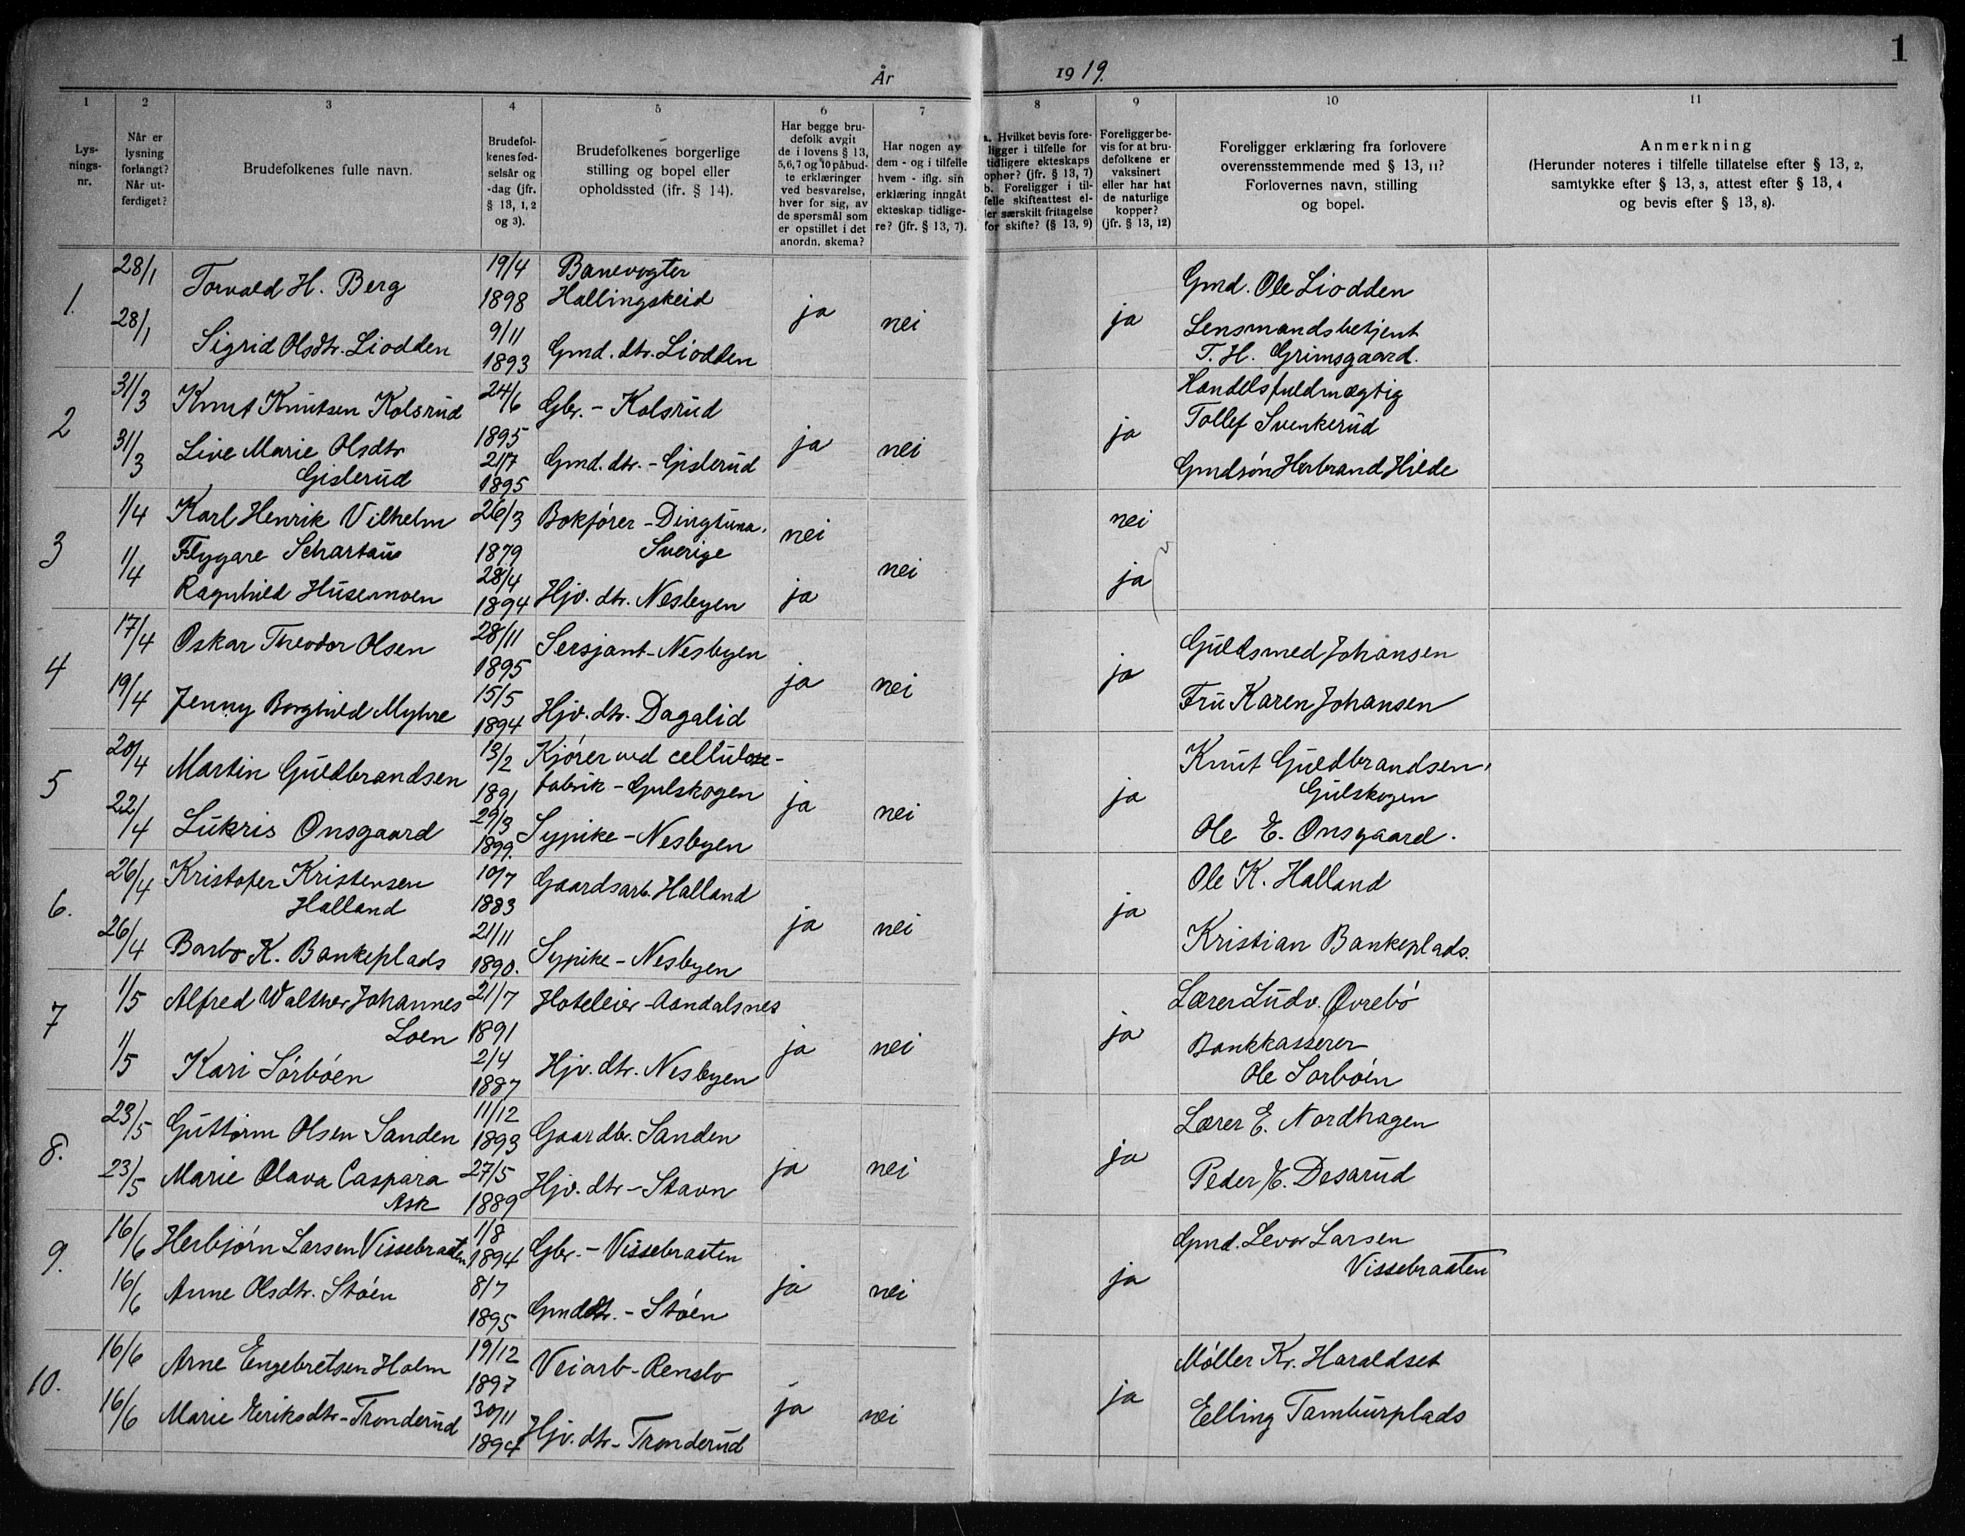 1
År 1919.
1 2 3 4 5 6 7 8 9 10 11
Lys-
nings-
nr.
Når er
lysning
forlangt?
Når ut-
ferdiget?
Brudefolkenes fulle navn.
Brudefol-
kenes fød-
selsår og
-dag (jfr.
§ 13, 1, 2
og 3).
Brudefolkenes borgerlige
stilling og bopel eller
opholdssted (ifr. § 14).
Har begge bru-
defolk avgit
de i lovens § 13,
5,6,7 og 10 påbud-
te erklæringer
ved besvarelse,
hver for sig, av
de spørsmål som
er opstillet i det
anordn. skema?
Har nogen av
dem - og i tilfelle
hvem - iflg. sin
erklæring inngåt
ekteskap tidlige-
re? (jfr. § 13, 7).
a. Hvilket bevis fore-
ligger i tilfelle for
tidligere ekteskaps
ophør? (jfr. § 13, 7)
b. Foreligger i til-
felle skifteattest el-
ler særskilt fritagelse
for skifte? (§ 13, 9)
Foreligger be-
vis for at bru-
defolkene er
vaksinert
eller har hat
de naturlige
kopper?
(jfr. § 13, 12)
Foreligger erklæring fra forlovere
overensstemmende med § 13, 11?
Forlovernes navn, stilling
og bopel.
Anmerkning
(Herunder noteres i tilfelle tillatelse efter § 13, 2,
samtykke efter § 13, 3, attest efter § 13, 4
og bevis efter § 13, 8).
1.
28/1 Torvald H. Berg 19/4 1898 Banevogter
Hallingskeid
28/1 Sigrid Olsdtr. Liodden 9/11 1893 Gmd. dtr. Liodden
ja nei ja
Gmd. Ole Liodden
Lensmandsbetjent
T. H. Grimsgaard.
2
31/3 Knut Knutsen Kolsrud 24/6 1895 Gbr. - Kolsrud
31/3 Live Marie Olsdtr
Gislerud 21/7 1895 Gmd. dtr. - Gislerud
ja nei ja
Handelsfuldmægtig
Tollef Svenkerud
Gmdsøn Herbrand Hilde
3
1/4 Karl Henrik Vilhelm
Flygare Schartau 26/3 1879 Bokfører - Dingtuna.
Sverige
nei nei
1/4 Ragnhild Husemoen 28/4 1894 Hjv. dtr. Nesbyen
ja nei ja
4
17/4 Oskar Theodor Olsen 28/11 1895 Sersjant - Nesbyen
19/4 Jenny Borghild Myhre 15/5 1894 Hjv. dtr. Dagalid
ja nei ja
Guldsmed Johansen
Fru Karen Johansen
5
20/4 Martin Guldbrandsen 13/2 1891 Kjører ved cellulose-
fabrik - Gulskogen
22/4 Lukris Onsgaard 29/3 1899. Sypike - Nesbyen
ja nei ja
Knut Guldbrandsen,
Gulskogen
Ole E. Onsgaard.
6.
26/4 Kristofer Kristensen
Halland 10/7 1883 Gaardsarb. Halland
26/4 Barbo K. Bankeplads 21/11 1890. Sypike - Nesbyen
ja nei ja
Ole K. Halland
Kristian Bankeplads.
7
1/5 Alfred Walther Johannes
Loen 21/7 1891 Hoteleier - Aandalsnes
1/5 Kari Sørbøen 2/4 1887 Hjv. dtr. Nesbyen
ja nei ja
Lærer Ludv. Øvrebø
Bankkasserer
Ole Sørbøen
8.
23/5 Guttorm Olsen Sanden 11/12 1893 Gaardbr. Sanden
23/5 Marie Olava Caspara
Ask 27/5 1889 Hjv. dtr - Stavn
ja nei ja
Lærer E. Nordhagen
Peder E. Desarud
9.
16/6 Herbjørn Larsen Vissebraaten 1/8 1894 Gbr. - Vissebraaten
16/6 Anne Olsdtr. Støen 8/7 1895 Gmddtr. - Støen
ja nei ja
Gmd. Levor Larsen
Vissebraaten
10.
16/6 Arne Engebretsen Holm 19/12 1897 Veiarb - Renslo
16/6 Marie Eriksdtr - Tronderud 30/11 1894 Hjv. dtr - Tronderud
ja nei ja
Møller Kr. Haraldset
Elling Tamburplads